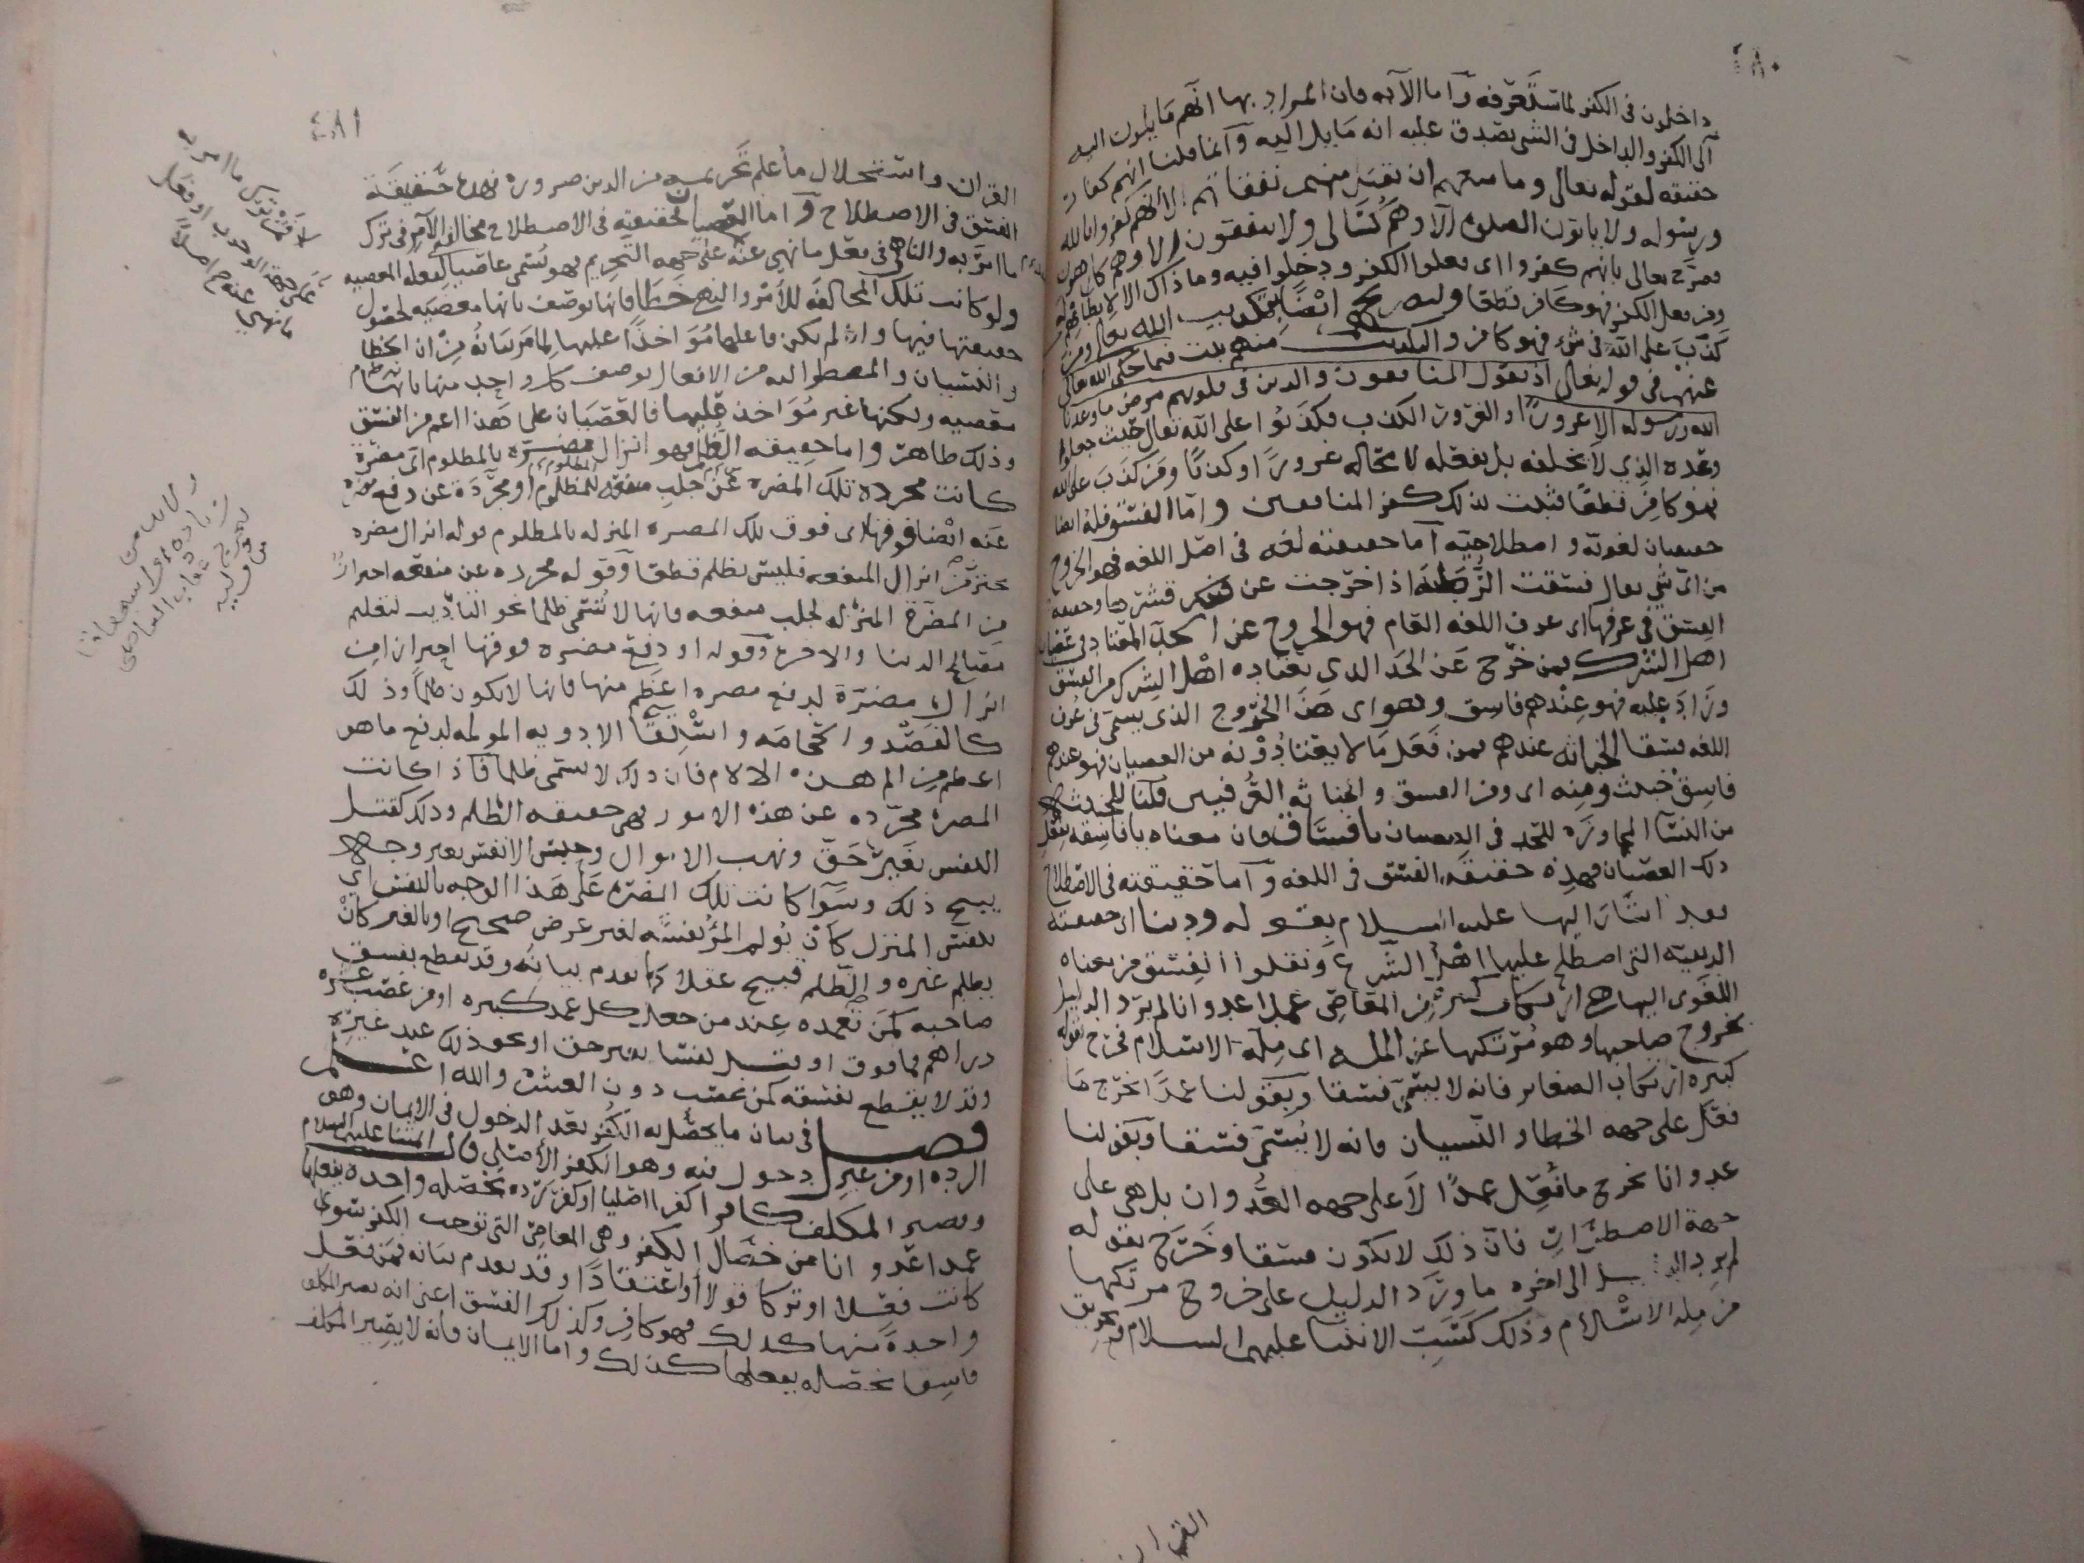 ٤٨٠
داخلون في الكفر لما ستعرفه وأما الآية فان المراد بها انهم مايلون اليه
الى الكفر والداخل في الشي يصدق عليه انه مايل اليه وانما قلنا انهم كفار
حقيقه لقوله تعالى وما منعهم ان تقبل منهم نفقاتهم الا انهم كفروا بالله
ورسوله ولا ياتون الصلوة الا وهم كسالى ولا ينفقون الا وهم كارهون
فصرح تعالى بانهم كفروا اى فعلوا الكفر ودخلوا فيه وما ذاك الا لابطانهم له
ومن فعل الكفر فهو كافر قطعا وليصريح ايضا بتكذيب الله تعالى ومن
كذب على الله في شيء فهو كافر والتكذيب منهم ثبت فيما حكى الله تعالى
عنهم في قوله تعالى اذ يقول المنافقون والذين في قلوبهم مرض ما وعدنا
الله ورسوله الا غرورا والغرور الكذب فكذبوا على الله تعالى حيث جعلوا
وعده الذي لا يخلفه بل يفعله لا محاله غرورا وكذبا ومن كذب على الله
فهو كافر قطعا فثبت بذلك كفر المنافقين واما الفسق فله ايضا
حقيقتان لغويه واصطلاحيه اما حقيقته لغه في اصل اللغه فهو الخروج
من اي شي يقال فسقت الرطبة اذا خرجت عن قشرها وحقيقة
الفسق في عرفها اى عرف اللغه العام فهو الخروج عن الحد المعتاد في عصيان
اهل الشرك فمن خرج عن الحد الذى يعتاده اهل الشرك من الفسق
وزاد عليه فهو عندهم فاسق وهو اى هذا الخروج الذى يسمى في عرف
اللغه فسقا الخباثه عندهم فمن فعل ما لا يعتادونه من العصيان فهو عندهم
فاسق خبيث ومنه اى ومن الفسق والخباثه العرفيين قلنا للخبيثه
من النساء المجاوزه للحد في العصيان يا فساق فان معناه يا فاسقه بفعل
ذلك العصيان فهذه حقيقة الفسق في اللغه وأما حقيقته في الاصطلاح
فقد اشار اليها عليه السلام بقوله ودينا اى حقيقته
الدينيه التي اصطلح عليها اهل الشرع ونقلوا الفسق من معناه
اللغوى اليها هي ارتكاب كبيرة من المعاصي عمدا عدوانا لم يرد الدليل
بخروج صاحبها وهو مرتكبها عن المله اى ملة الاسلام فخرج بقوله
كبيره ارتكاب الصغاير فانه لا يسمى فسقا وبقولنا عمدا اخرج ما
فعل على جهه الخطا والنسيان فانه لا يسمى فسقا وبقولنا
عدوانا يخرج ما فعل عمدا لا على جهه العدوان بل هي على
جهة الاضطرار فان ذلك لا يكون فسقا وخرج بقوله
لم يرد الدليل الى اخره ما ورد الدليل على خروج مرتكبها
من ملة الاسلام وذلك كسب الانبيا عليهم السلام وتمزيق
القران
٤٨١
القران واستحلال ما علم تحريمه من الدين ضرورة فهذه حقيقة
الفسق في الاصطلاح واما العصيان فحقيقته في الاصطلاح مخالفة الآمر في ترك
ما امر به والناهي في فعل ما نهي عنه على جهه التحريم فهو يسمى عاصيا لفعله المعصيه
ولو كانت تلك المخالفة للأمر والنهي خطأ فانها توصف بانها معصيه لحصول
حقيقتها فيها وان لم يكن فاعلها مؤاخذا عليها لما مر بيانه من ان الخطا
والنسيان والمضطر اليه من الافعال يوصف كل واحد منها بانها
معصيه ولكنها غير مؤاخذ عليها فالعصيان على هذا اعم من الفسق
وذلك ظاهر واما حقيقه الظلم فهو انزال مضرة بالمظلوم اي مضرة
كانت مجردة تلك المضره عن جلب منفعه للمظلوم او مجردة عن دفع مضره
عنه ايضا فوقها اى فوق تلك المضره المنزله بالمظلوم قوله انزال مضره
يحترز من انزال المنفعه فليس بظلم قطعا وقوله مجرده عن منفعه احترازا
من المضرة المنزله لجلب منفعه فانها لا تسمى ظلما نحو التأديب لتعليم
مصالح الدنيا والاخرة وقوله او دفع مضره فوقها احترازا من
انزال مضرة لدفع مضره اعظم منها فانها لا يكون ظلما وذلك
كالفصد والحجامه واستعمال الادويه المولمه لدفع ما هو
اعظم من الم هذه الالام فان ذلك لا يسمى ظلما فاذا كانت
المضرة مجرده عن هذه الامور فهي حقيقه الظلم وذلك كقتل
النفس بغير حق ونهب الاموال وحبس الانفس بغير وجه
يبيح ذلك وسوآ كانت تلك المضره على هذا الوجه بالنفس اى
بنفس المنزل كأن يولم المرء نفسه لغير غرض صحيح او بالغير كأن
يظلم غيره والظلم قبيح عقلا كما تقدم بيانه وقد يقطع بفسق
صاحبه كمن تعمده عند من جعل كل عمد كبيره او من غصب عشرة
دراهم فما فوق او قتل نفسا بغير حق او نحو ذلك عند غيره
وقد لا يقطع بفسقه كمن غصب دون العشر والله اعلم
فصل في بيان ما يحصل به الكفر بعد الدخول في الايمان وهو
الرده او من غير دخول فيه وهو الكفر الأصلي قال ائمتنا عليهم السلام
ويصير المكلف كافرا كفرا اصليا او كفر رده بخصله واحدة يفعلها
عمدا عدوانا من خصال الكفر وهي المعاصي التي توجب الكفر سوى
كانت فعلا او تركا قولا أو اعتقادا وقد تقدم بيانه فمن فعل
واحدة منها كذلك فهو كافر وكذلك الفسق اعنى انه يصير المكلف
فاسقا بخصله يفعلها كذلك واما الايمان فانه لا يصير المكلف